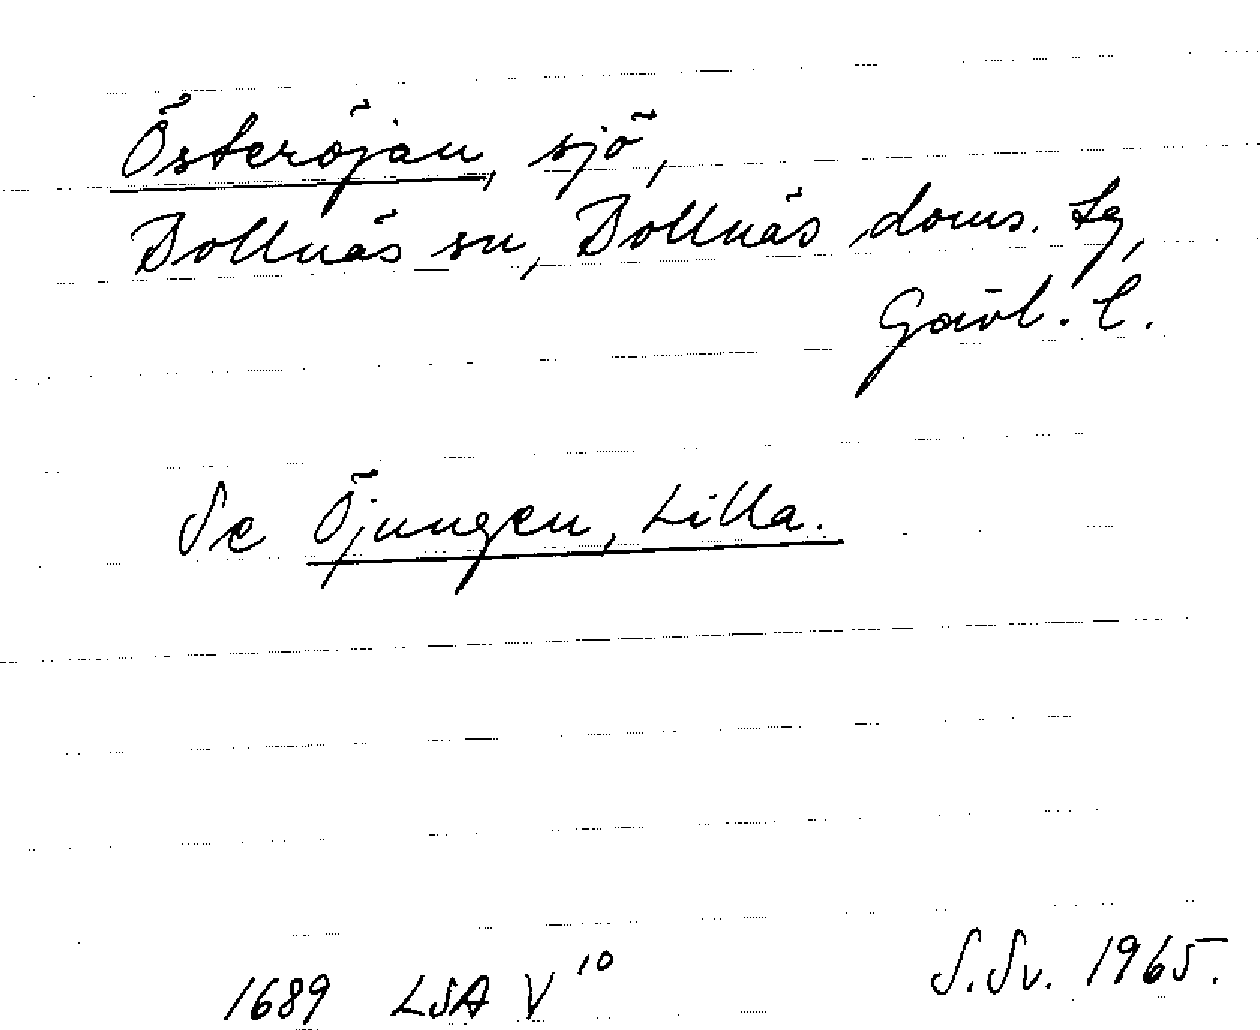 Österöjan, sjö,
Bollnäs sn, Bollnäs doms. tg,
Gävl. l.
Se Öjungen, Lilla.
1689 LSA V 10
S.Sv. 1965.